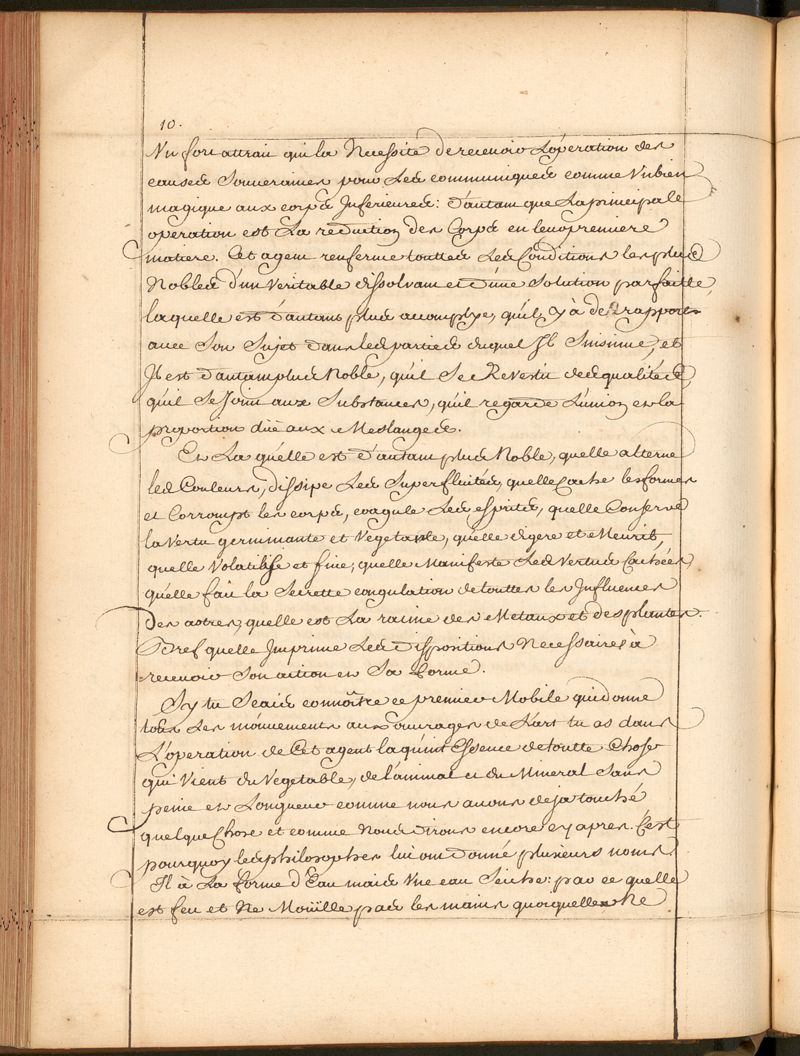 10.
Vn fort attrait qui la Necessite de receuoir L'operation des
causes Souueraines pour Les communiquer comme Vn bien
magique aux corps Inferieures: d'autant que La principale
operation est La reduction des Corps en leur premiere
matiere. Cet agent renferme touttes Les Conditions les plus
Nobles d'un Veritable dissoluant et d'une solution parfaitte,
laquelle est d'autant plus accomplye, qu'il y à de rapport
auec Son Sujet dans les parties duquel Il S'insinue, et
Il est d'autant plus Noble, qu'il Se Revestit des qualités,
qu'il Se Joint aux Substances, qu'il regarde L'union et la
proportion düe aux Meslanges.
En La quelle est d'autant plus Noble, quelle alterne
les Couleurs, dissipe Les Superfluités, quelle Cache les formes
et Corrompt les corps, coagule Les esprits, quelle Conserve
la Vertu germinante et Vegetante, quelle digere et Meurit,
quelle Volatilise et fixe, quelle Manifeste Les Vertus Cachées,
quelle fait la Secrette coagulation de touttes les Influences
Des astres, quelle est La racine des Metaux et des plantes.
Bref quelle Imprime Les dispositions Necessaires à
receuoir Son action et Sa forme.
Sy tu Scais connoître ce premier Mobile qui donne
tous Les mouuements aux ouurages de L'art tu as dans
L'operation de Cet agent la quint Essence de toutte Chose
qui Vient du Vegetable, de l'animal et du Mineral Sans
peine et Longueur comme nous auons deja touché
quelque Chose et comme Nous dirons encore cy apres. C'est
pourquoy les philosophes lui ont donné plusieurs noms.
Il à La forme d'Eau mais Vne eau Seiche: par ce quelle
est feu et Ne Moüille pas les mains quoiquelle Ne